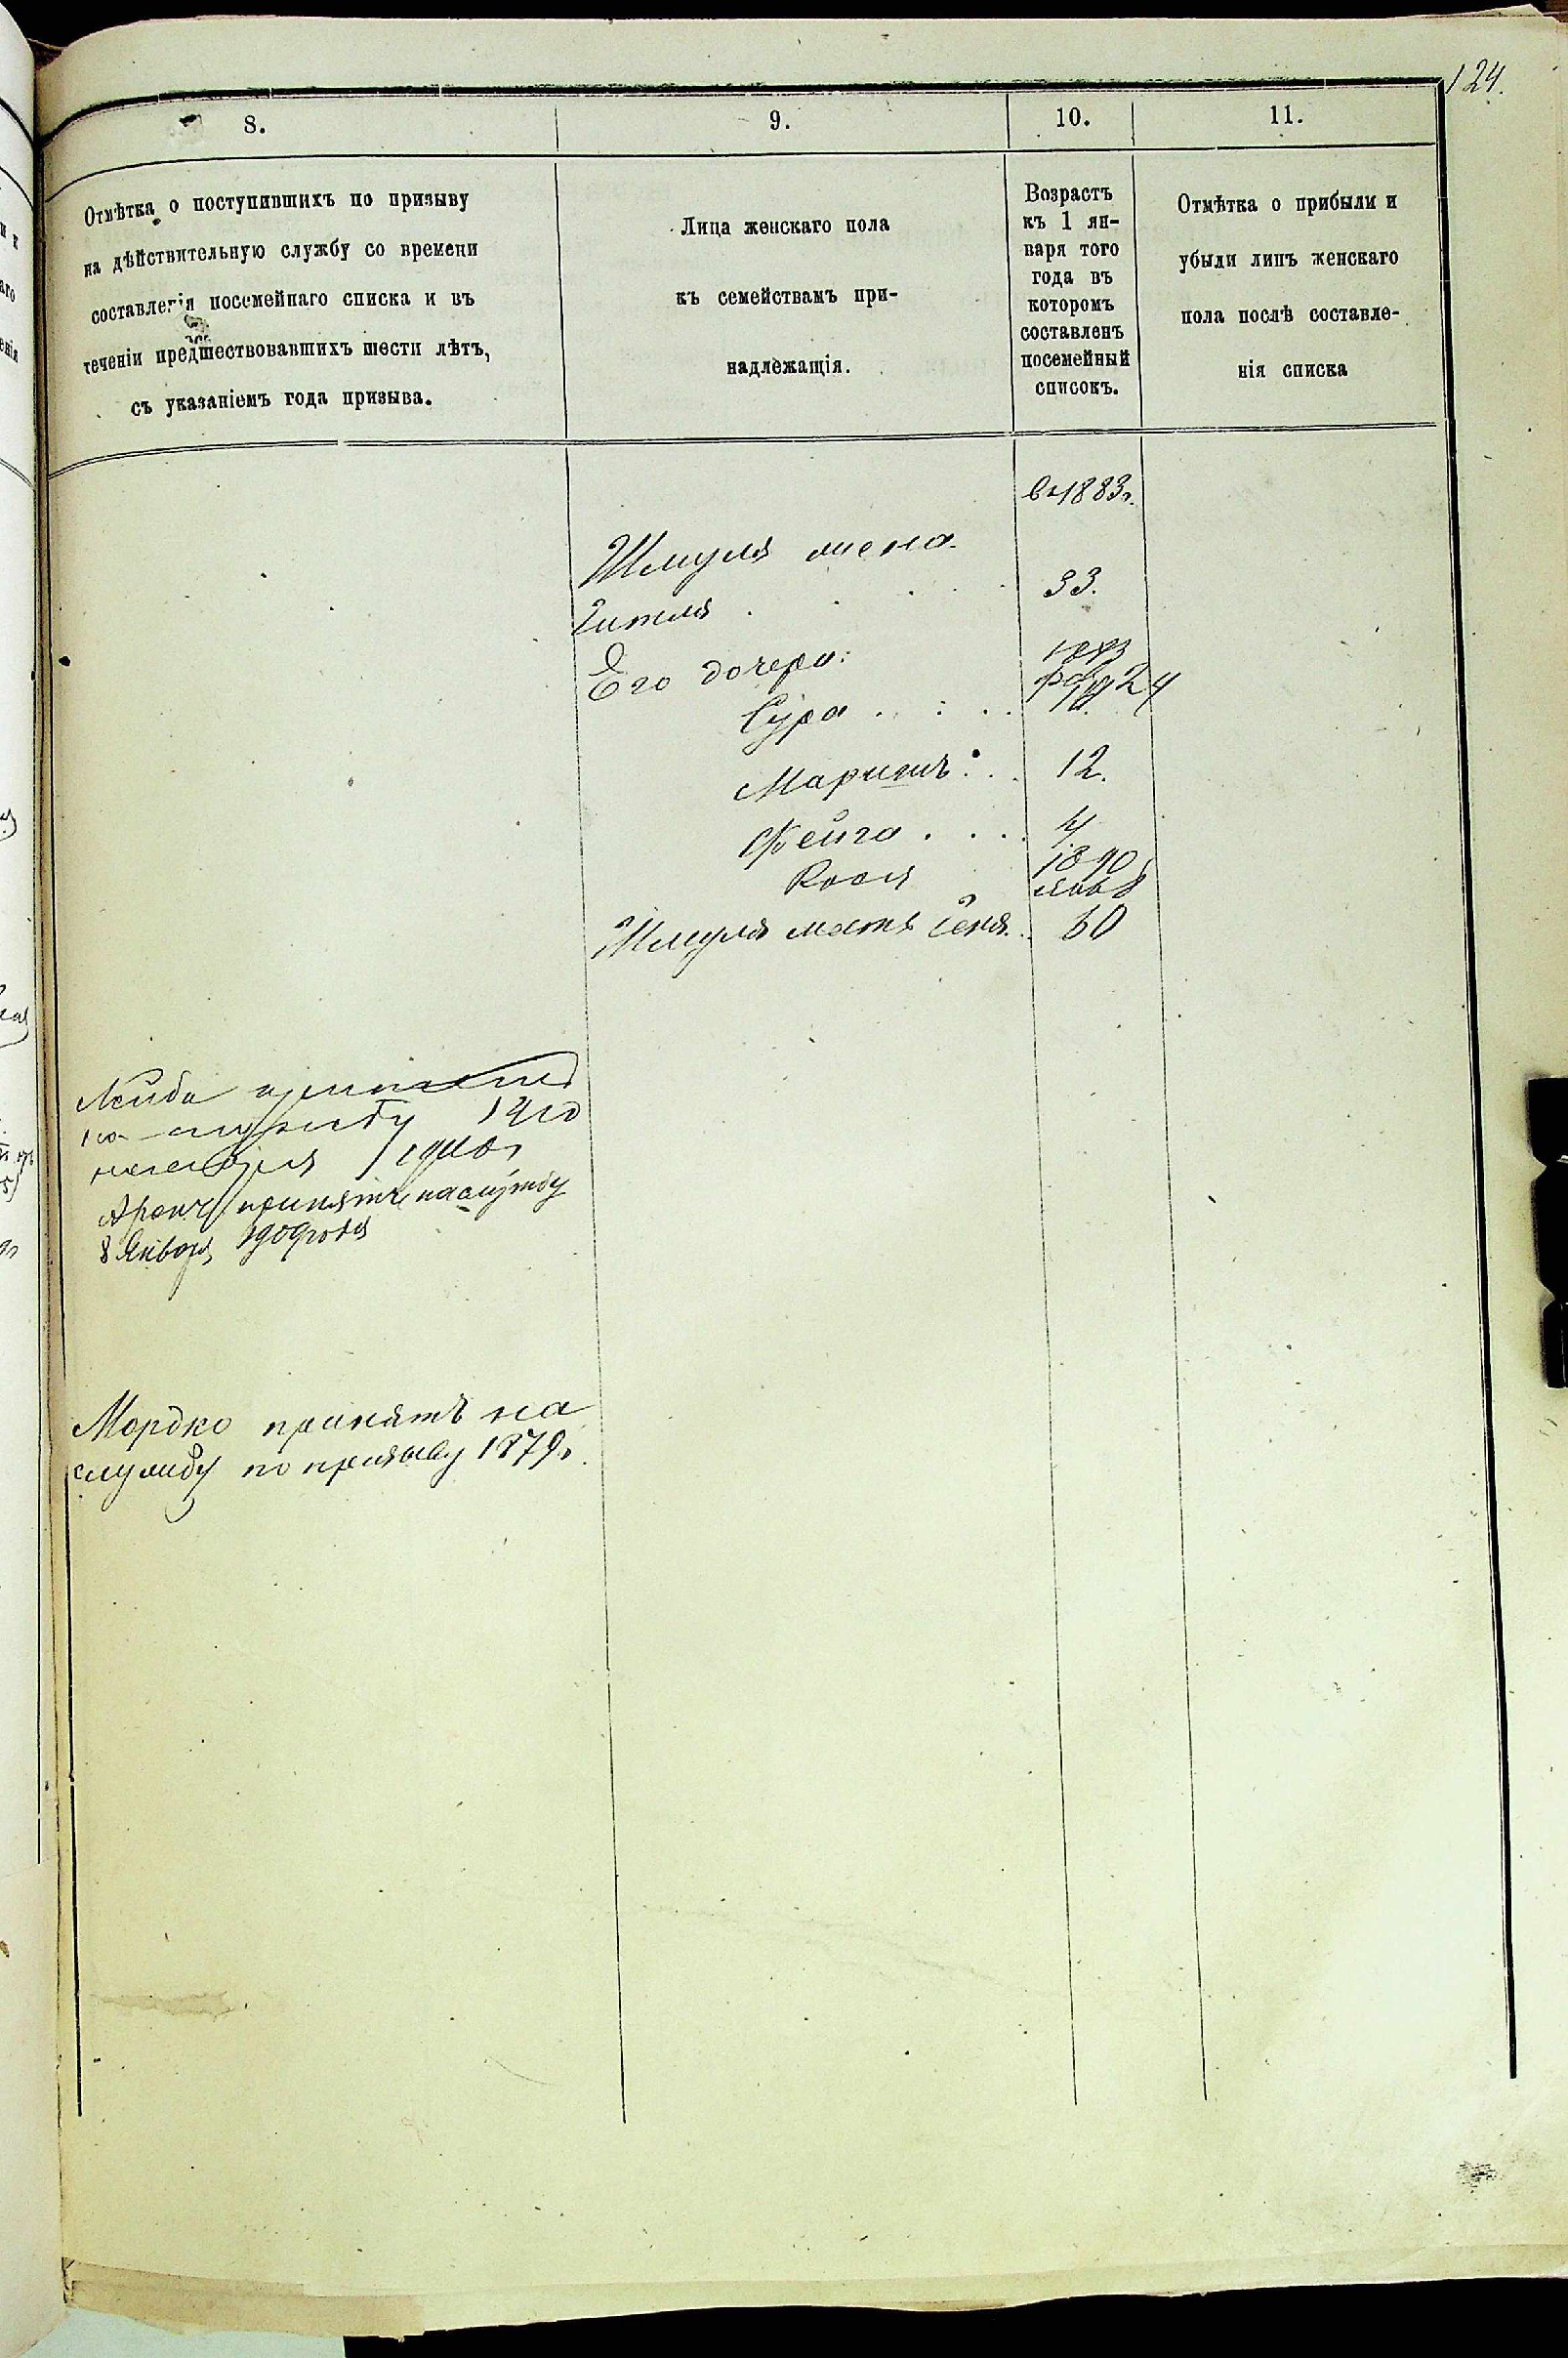 124.
8.
9.
10.
11.
Отмѣтка о поступившихъ по призыву
на дѣйствительную службу со времени
составленія посемейнаго списка и въ
теченіи предшествовавшихъ шести лѣтъ,
съ указаніемъ года призыва.
Лица женскаго пола
къ семействамъ при-
надлежащія.
Возрастъ
къ 1 ян-
варя того
года въ
которомъ
составленъ
посемейный
списокъ.
Отмѣтка о прибыли и
убыли лицъ женскаго
пола послѣ составле-
нія списка
въ 1883г.
Шмуля жена
Гитля . . . . 33.
Его дочери:
Сура . . . .
Маріишъ . . 12.
Фейга . . . . 4
1890
Шмуля мать 60
Лейба
на службу
Аронъ принятъ на службу
8 Января 1909 года
Мордко принятъ на
службу по призыву 1879г.